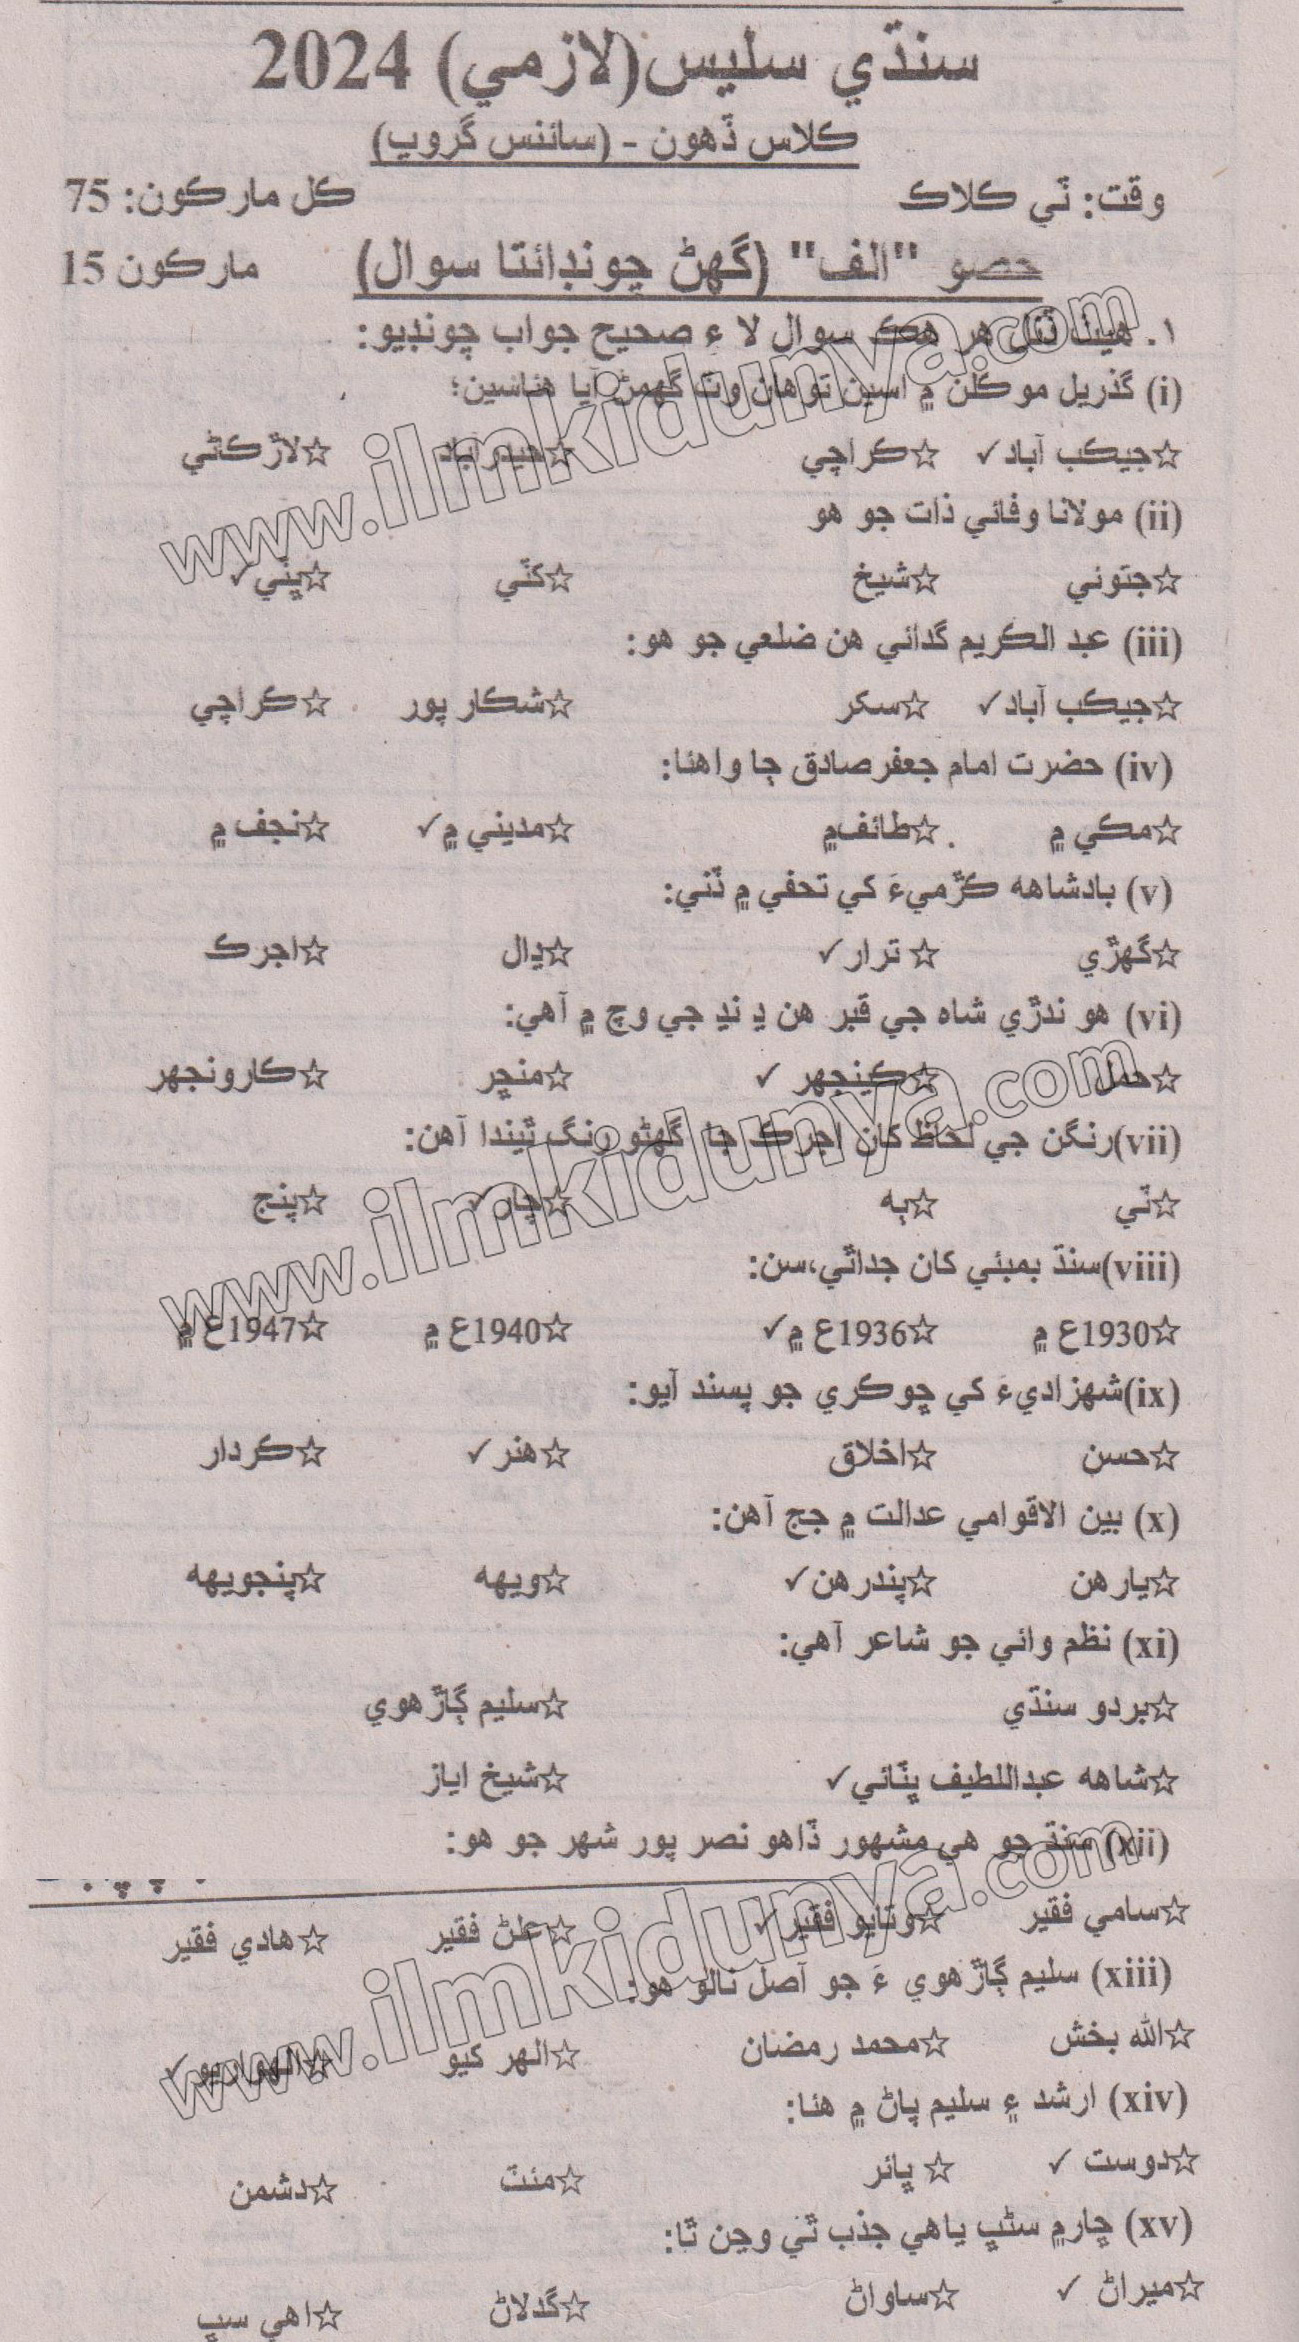 سنڌي سليس(لازمي) 2024
ڪلاس ڏهون - (سائنس گروپ)
وقت: ٽي ڪلاڪ ڪل مارڪون: 75
حصو "الف" (گهڻ چونڊائتا سوال) مارڪون 15
۱. هيٺ ڏنل هر هڪ سوال لا ءِ صحيح جواب چونڊيو:
(i) گذريل موڪلن ۾ اسين توهان وٽ گهمڻ آيا هئاسين؛
☆جيڪب آباد✓ ☆ڪراچي ☆حيدرآباد ☆لاڙڪاڻي
(ii) مولانا وفائي ذات جو هو
☆جتوئي ☆شيخ ☆کٽي ☆ڀٽي✓
(iii) عبد الڪريم گدائي هن ضلعي جو هو:
☆جيڪب آباد✓ ☆سکر ☆شڪار پور ☆ڪراچي
(iv) حضرت امام جعفرصادق جا واهئا:
☆مڪي ۾ ☆طائف۾ ☆مديني ۾✓ ☆نجف ۾
(v) بادشاهه ڪڙميءَ کي تحفي ۾ ڏني:
☆گهڙي ☆ ترار✓ ☆ڍال ☆اجرڪ
(vi) هو ندڙي شاه جي قبر هن ڍ نڍ جي وچ ۾ آهي:
☆حمل ☆ڪينجهر ✓ ☆منڇر ☆ڪارونجهر
(vii)رنگن جي لحاظ کان اجرڪ جا گهڻو رنگ ٿيندا آهن:
☆ٽي ☆ٻه ☆چار✓ ☆پنج
(viii)سنڌ بمبئي کان جداٿي،سن:
☆1930ع ۾ ☆1936ع ۾✓ ☆1940ع ۾ ☆1947ع ۾
(ix)شهزاديءَ کي ڇوڪري جو پسند آيو:
☆حسن ☆اخلاق ☆هنر✓ ☆ڪردار
(x) بين الاقوامي عدالت ۾ جج آهن:
☆يارهن ☆پندرهن✓ ☆ويهه ☆پنجويهه
(xi) نظم وائي جو شاعر آهي:
☆بردو سنڌي ☆سليم ڳاڙهوي
☆شاهه عبداللطيف ڀٽائي✓ ☆شيخ اياز
(xii) سنڌ جو هي مشهور ڏاهو نصر پور شهر جو هو:
☆سامي فقير ☆وتايو فقير✓ ☆علڻ فقير ☆هادي فقير
(xiii) سليم ڳاڙهوي ءَ جو آصل نالو هو:
☆الله بخش ☆محمد رمضان ☆الهر کيو ☆الهواريو✓
(xiv) ارشد ۽ سليم پاڻ ۾ هئا:
☆دوست ✓ ☆ ڀائر ☆مئٽ ☆دشمن
(xv) ڇار۾ سٺڀ ياهي جذب ٿي وڃن ٿا:
☆ميراڻ ✓ ☆ساواڻ ☆گدلاڻ ☆اهي سڀ
www.ilmkidunya.com
www.ilmkidunya.com
www.ilmkidunya.com